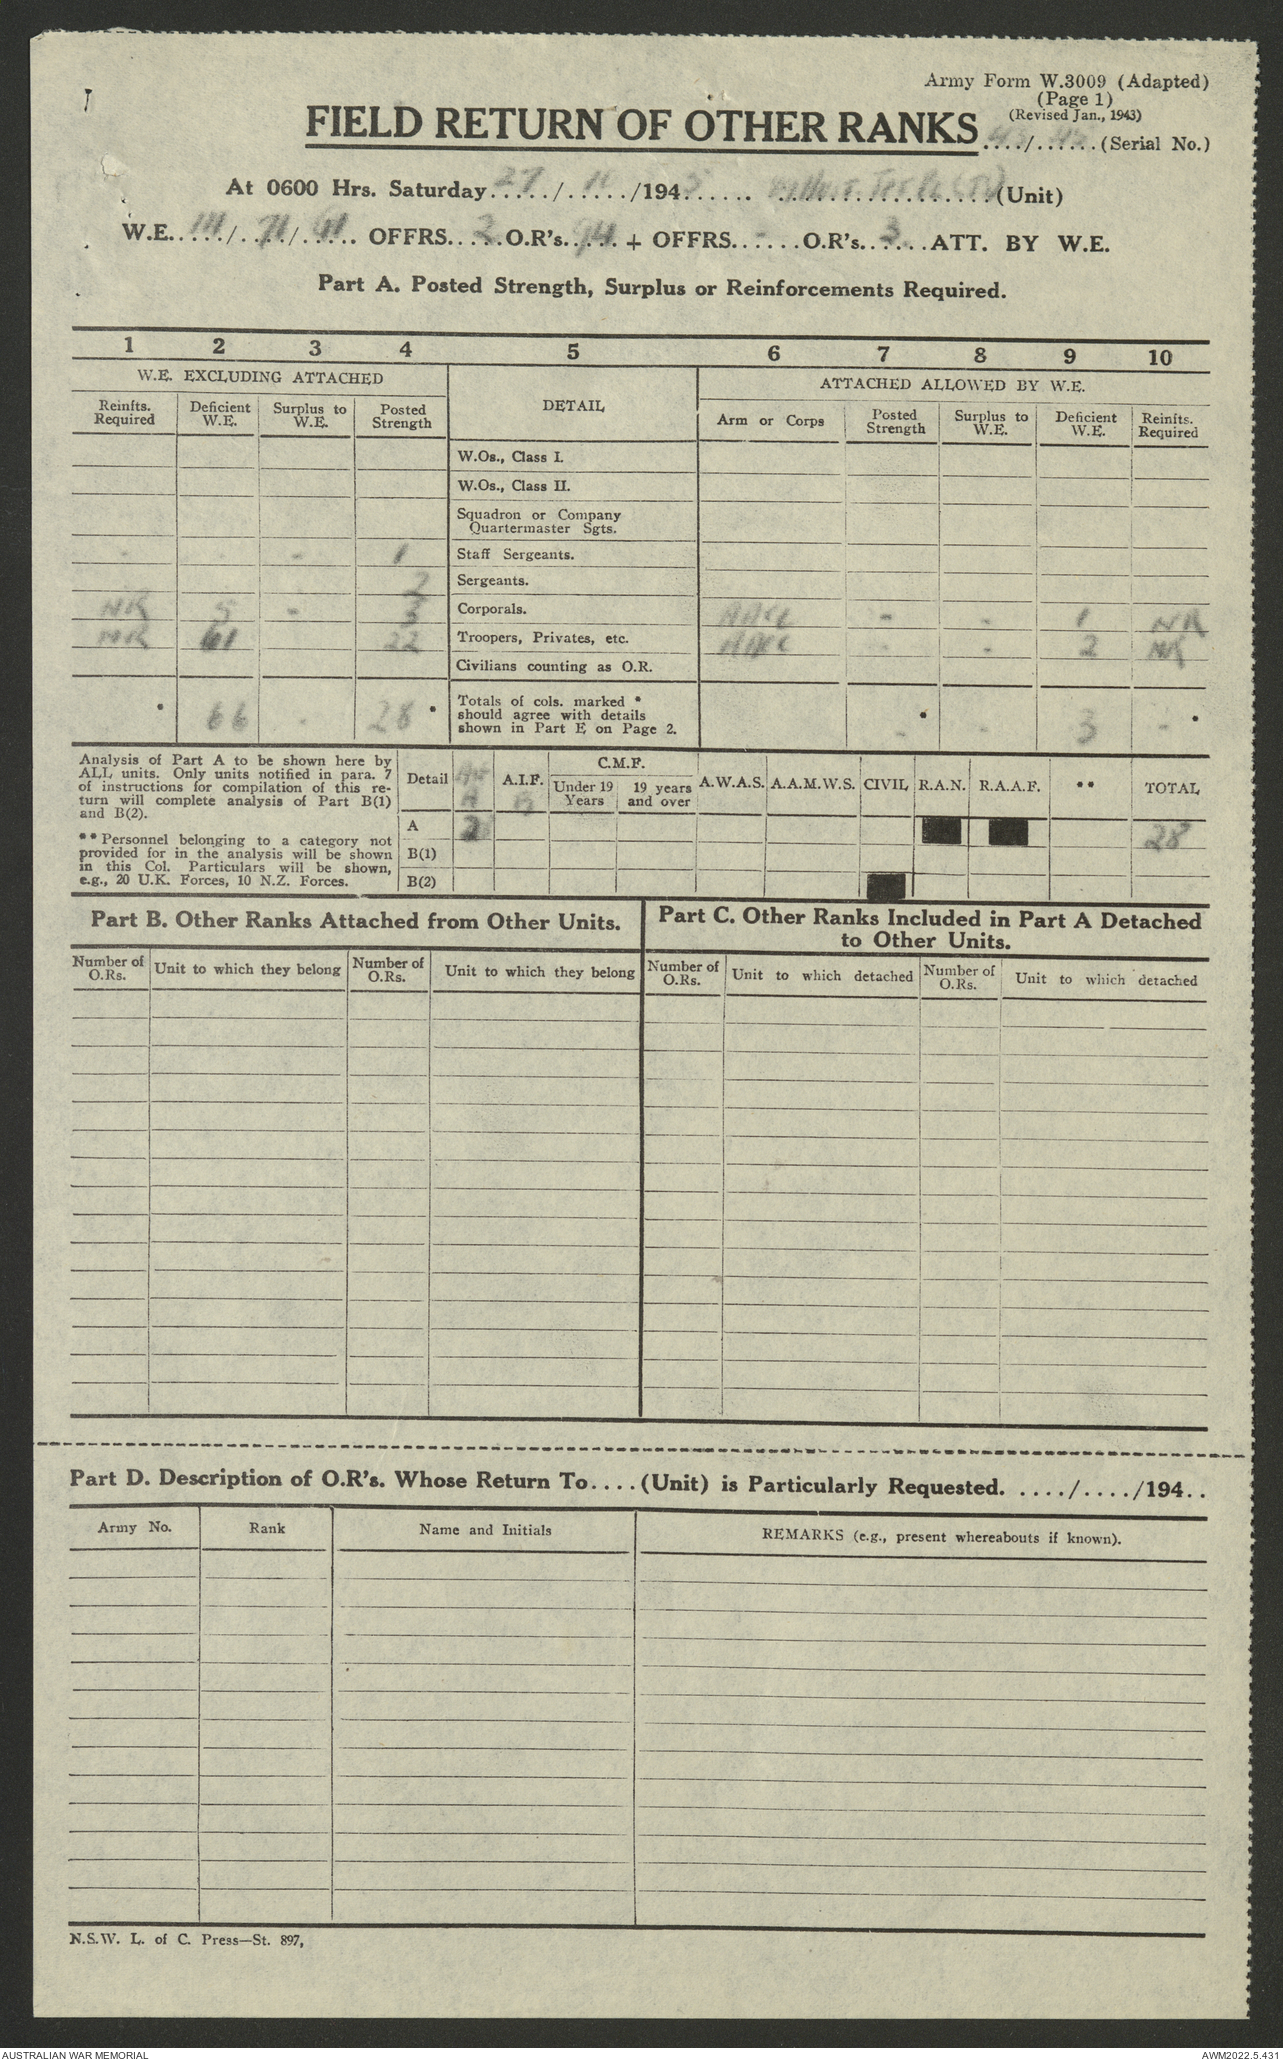 Army Form W.3009 (Adapted)
(Page 1)
(Revised Jan., 1943)
FIELD RETURN OF OTHER RANKS ..../...... (Serial No.)
At 0600 Hrs. Saturday 27/ /1945 (Unit)
W.E. / 71/ OFFRS. 2 O.R's. 94 + OFFRS. - O.R's. 3 ATT. BY W.E.
Part A. Posted Strength, Surplus or Reinforcements Required.
1 2 3 4 5 6 7 8 9 10
W.E. EXCLUDING ATTACHED DETAIL ATTACHED ALLOWED BY W.E.
Reinfts. Required Deficient W.E. Surplus to W.E. Posted Strength Arm or Corps Posted Strength Surplus to W.E. Deficient W.E. Reinfts. Required
W.Os., Class I.
W.Os., Class II.
Squadron or Company
Quartermaster Sgts.
- - - 1 Staff Sergeants.
2 Sergeants.
NR 5 - 3 Corporals. AACC - - 1 NR
NR 61 22 Troopers, Privates, etc. AACC - - 2 NR
Civilians counting as O.R.
* 66 - 28 * Totals of cols. marked *
should agree with details
shown in Part E on Page 2. * - - 3 - *
Analysis of Part A to be shown here by
ALL units. Only units notified in para. 7
of instructions for compilation of this re-
turn will complete analysis of Part B(1)
and B(2).
** Personnel belonging to a category not
provided for in the analysis will be shown
in this Col. Particulars will be shown,
e.g., 20 U.K. Forces, 10 N.Z. Forces.
Detail A.I.F. C.M.F. A.W.A.S. A.A.M.W.S. CIVIL R.A.N. R.A.A.F. ** TOTAL
Under 19 Years 19 years and over
A 28
B(1)
B(2)
Part B. Other Ranks Attached from Other Units.
Part C. Other Ranks Included in Part A Detached
to Other Units.
Number of O.Rs. Unit to which they belong Number of O.Rs. Unit to which they belong Number of O.Rs. Unit to which detached Number of O.Rs. Unit to which detached
Part D. Description of O.R's. Whose Return To....(Unit) is Particularly Requested. ..../..../194..
Army No. Rank Name and Initials REMARKS (e.g., present whereabouts if known).
N.S.W. L. of C. Press—St. 897,
AUSTRALIAN WAR MEMORIAL AWM2022.5.431